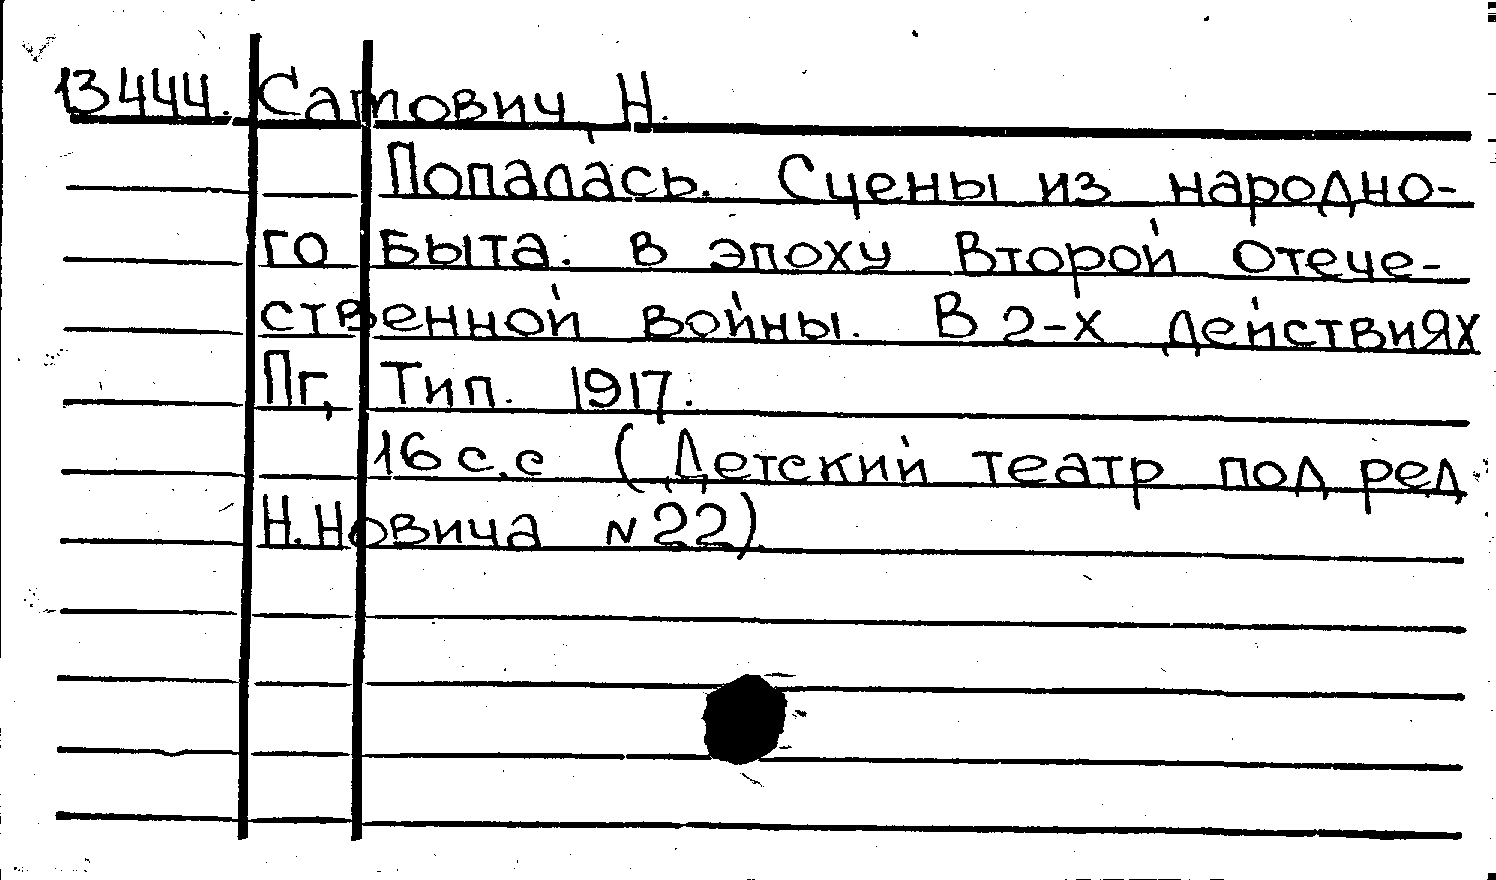 13444. Сатович, Н.
Попалась. Сцены из народно-
го быта. в эпоху Второй Отече-
ственной войны. В 2-х действиях
Пг, Тип. 1917.
16 с.с (Детский театр под ред
Н. Новича N 22).